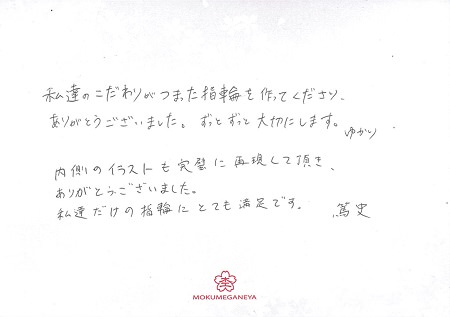 私達のこだわりがつまった指輪を作ってくださり、
ありがとうございました。ずっとずっと大切にします。
ゆかり
内側のイラストも完璧に再現して頂き、
ありがとうございました。
私達だけの指輪にとても満足です。 篤史
MOKUMEGANEYA